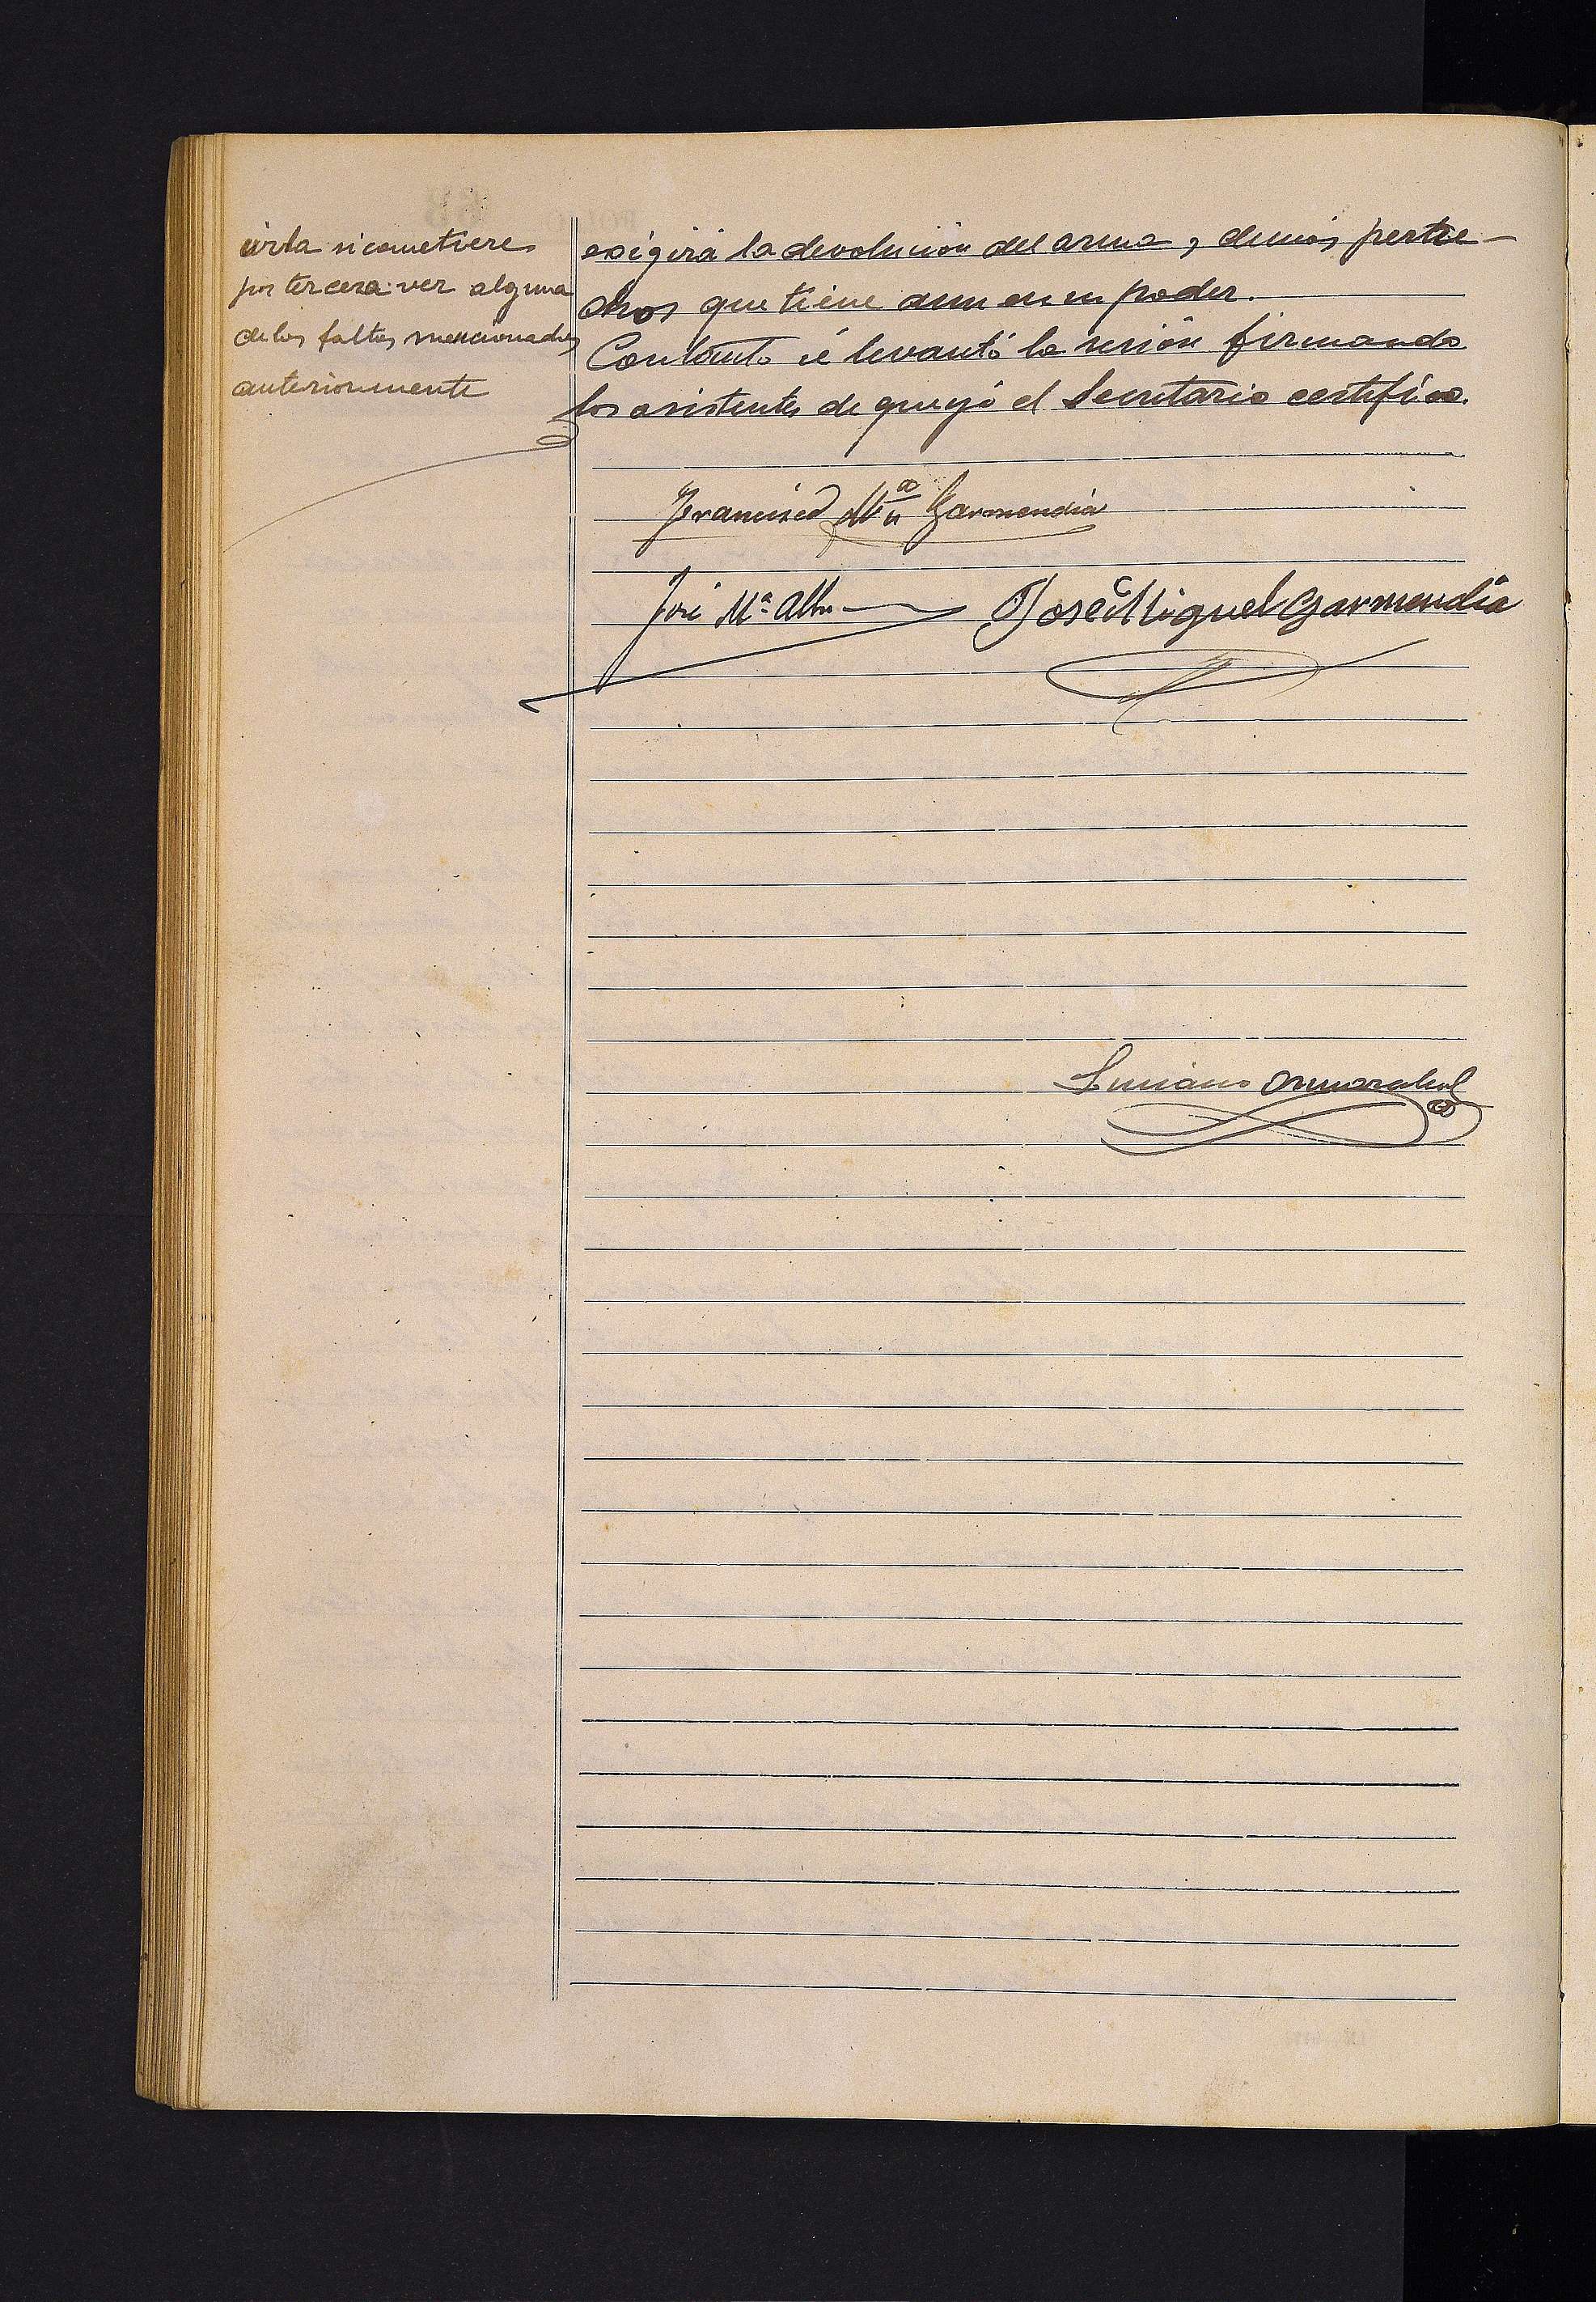 irla si cometiere
por tercera vez alguna
de las faltas mencionadas
anteriormente
exigirá la devolución del arma y demás pertre-
chos que tiene aun en su poder.
Con lo cual se levantó la sesión firmando
los asistentes de que yo el Secretario certifico.
Francisco Mª Garmendia
José Mª Albu
José Miguel Garmendia
Luciano